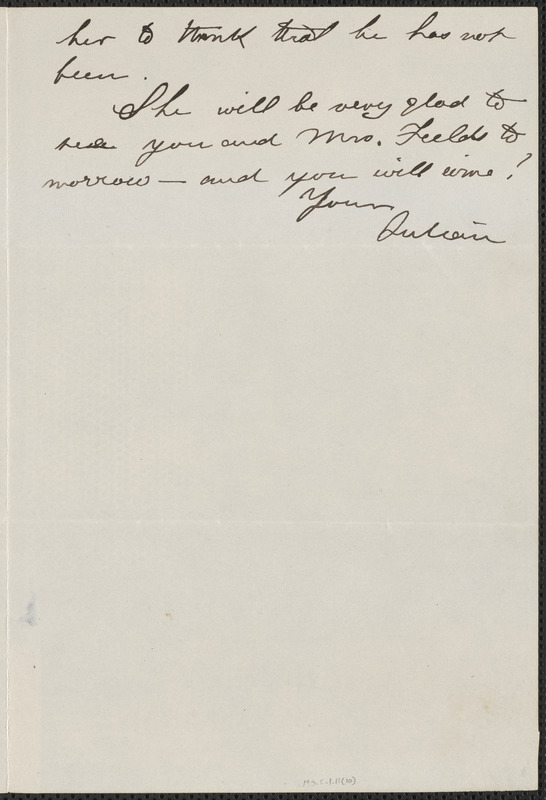 her to think that he has not
been.
She will be very glad to
see you and Mrs. Fields to
morrow — and you will come?
Yours
Julian